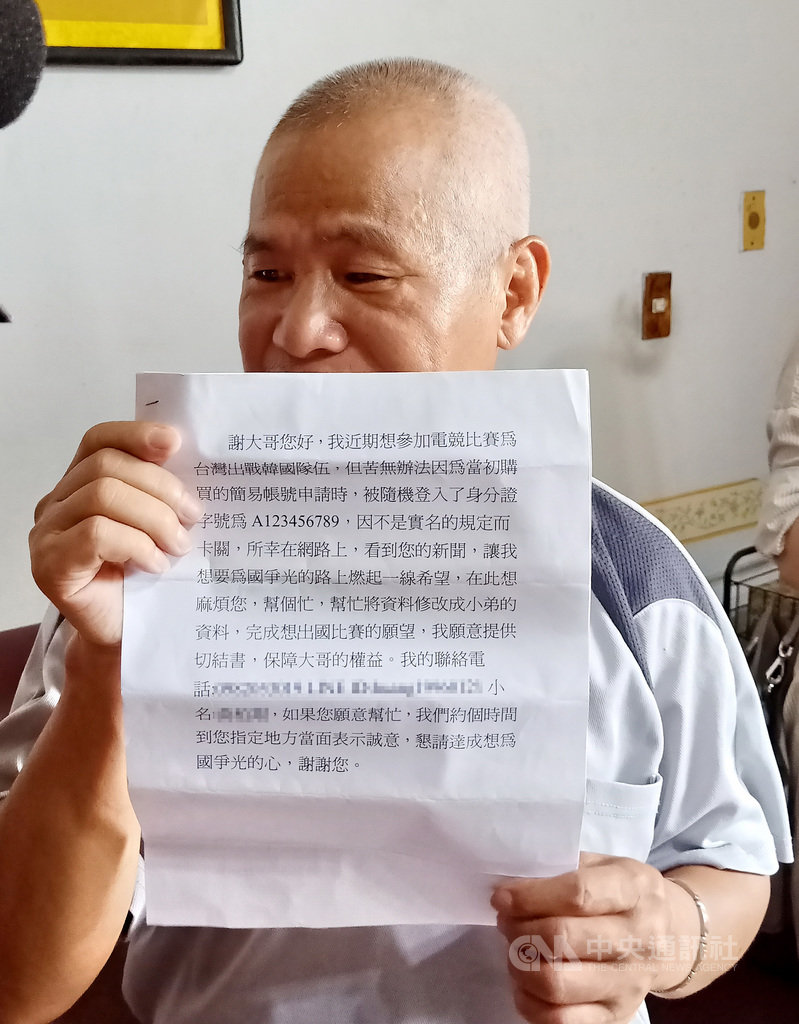 謝大哥您好，我近期想參加電競比賽為
台灣出戰韓國隊伍，但苦無辦法因為當初購
買的簡易帳號申請時，被隨機登入了身分證
字號為 A123456789，因不是實名的規定而
卡關，所幸在網路上，看到您的新聞，讓我
想要為國爭光的路上燃起一線希望，在此想
麻煩您，幫個忙，幫忙將資料修改成小弟的
資料，完成想出國比賽的願望，我願意提供
切結書，保障大哥的權益。我的聯絡電
話: 小
名: ，如果您願意幫忙，我們約個時間
到您指定地方當面表示誠意，懇請達成想為
國爭光的心，謝謝您。
CNA 中央通訊社
THE CENTRAL NEWS AGENCY